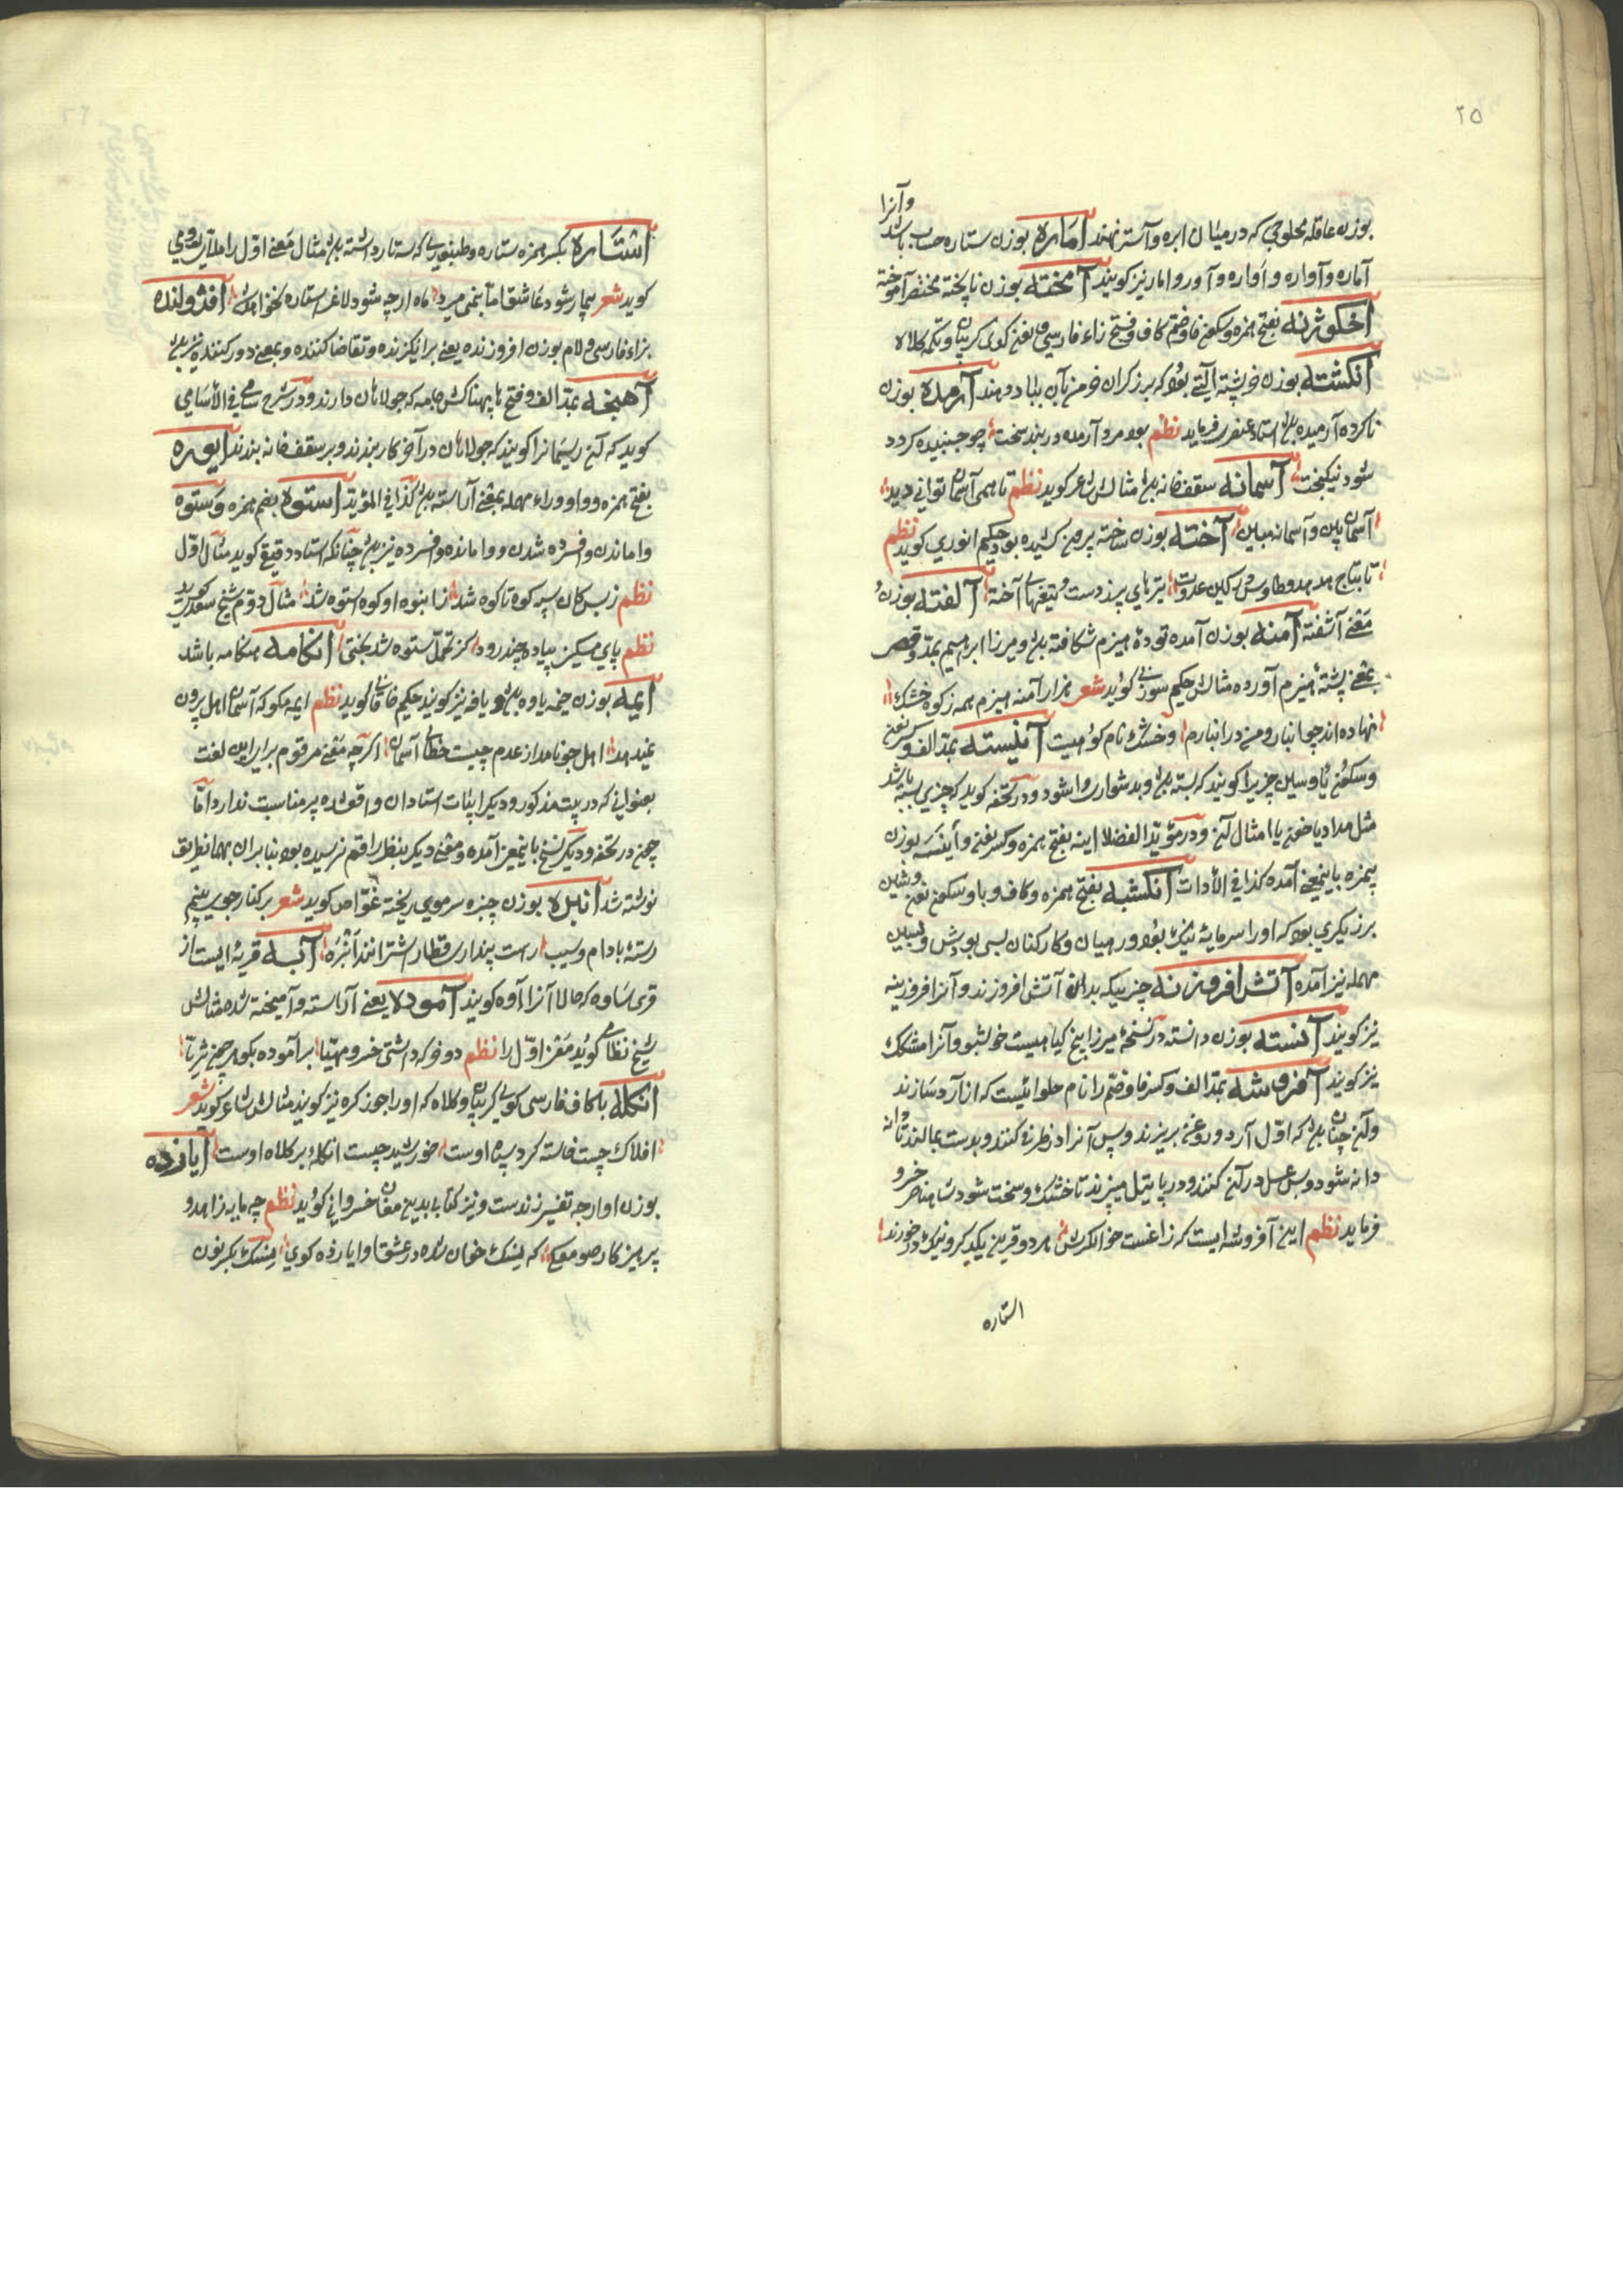 ٢٥
وآنرا
بوزن عاقله محلوجی که در میان ابره وآستر نهند اماره بوزن ستاره حساب باشد
آماره وآواره و اواره وآور وامار نیز کویند آمخته بوزن ناپخته مختصر آموخته
اخکوژنه بفتح همزه وسکون خا وضم کاف وفتح زاء فارسی ونون کوی کریبان وتکمه کلاه
انکشته بوزن خوشته آلتی بود که برزکران خرمن بآن بباد دهند آرمده بوزن
ناکرده آرمیده بود استاد عنصری فرماید نظم بود مرد آرمده در بند سخت چو جنبیده کردد
شود نیکبخت آسمانه سقف خانه بود مثالش شاعر کوید نظم تا همی آسمان توانی دید
آسمان بین وآسمانه مبین آخته بوزن ساخته بیرون کشیده بود حکیم انوری کوید نظم
تا بتاج هدهد وطاوس کین عدوت تیرهای پر زدست وتیغهای آخته آلفته بوزن و
معنی آشفته آمنه بوزن آمده تودهٔ هیزم شکافته بود ومیرزا ابراهیم بمد وقصر
بمعنی پشتهٔ هیزم آورده مثالش حکیم سوزنی کوید شعر هزار آمنه هیزم همه زکوه خشک
نهاده اند چو انبار ومنی در انبارم وخشک نام کوهیست آنیسته بمد الف وکسر نون
وسکون یا وسین چیزیرا کویند که بسته بود وبدشواری وا شود ودر تحفه کوید که چیزی بسته باشد
مثل مداد یا خون یا امثال آن ودر مؤید الفضلا اینه بفتح همزه وکسر نون وأینسه بوزن
پهمزه باینمعنی آمده کذا فی الأدات انکشبه بفتح همزه وکاف وبا وسکون نون وشین
برزیکری بود که اورا سرمایه نیک بود ور میان وکارکنان بسی بودش وبسین
مهمله نیز آمده آتش افروزنه چیزیکه بدان آتش افروزند وآنرا افروزینه
نیز کویند آنسته بوزن دانسته در نسخهٔ میرزا بیخ کیاهیست خوشبو وآنرا مشک
نیز کویند آفروشه بمد الف وکسر فا وضم را نام حلوائیست که از آرد سازند
وآن چنان بود که اول آرد وروغن بریزند وپس آنرا در ظرفی کنند وبدست بمالند تا دانه
دانه شود وپس عسل در آن کنند ودر پاتیل میپزند تا خشک وسخت شود شاه ناصر خسرو
فرماید نظم این آفروشه ایست که زاغست خوالکرش هر دو قرین یکدیکر ونیک درخورند
استاره
٢٦
استاره بکسر همزه ستاره وطنبوری که سه تار داشته بود مثال معنی اول را ملای رومی
کوید شعر بیمار شود عاشق اما بنمی میرد ماه ارچه شود لاغر استاره نخواهد شد افژولنده
بزاء فارسی ولام بوزن افروزنده یعنی برانکیزنده وتقاضا کننده وبمعنی دور کننده نیز بود
آهنجه بمد الف وفتح ها پهناکش جامه که جولاهان دارند ودر شرح سامی فی الأسامی
کوید که آن ریسمانرا کویند که جولاهان در آخر کار بندند وبر سقف خانه بندند ایوره
بفتح همزه وواو وراء مهمله بمعنی آراسته بود کذا فی المؤید استوه بضم همزه وستوه
واماندن وافسرده شدن ووا مانده وافسرده نیز بود چنانکه استاد دقیقی کوید مثال اول
نظم زبس کان سپه کوه تا کوه شد زانبوه او کوه استوه شد مثال دوم شیخ سعدی کوید
نظم پای مسکین پیاده چند رود کز تحمل ستوه شد بختی انکامه هنکامه باشد
ایمه بوزن خیمه یاوه بود ویافه نیز کویند حکیم خاقانی کوید نظم ایمه مکو که آسمان اهل برون
نمیدهد اهل چو نامد از عدم چیست خطای آسمان اکر چه معنی مرقوم برای این لغت
بعنوانی که در بیت مذکور ودیکر ابیات استادان واقع شده پر مناسبت ندارد اما
چون در تحفه ودیکر نسخ باینمعنی آمده ومعنی دیکر بنظر راقم نرسیده بود بنابران بهمانطریق
نوشته شد انبره بوزن چنبره سر موی ریخته غواص کوید شعر بر کنار جوی بینم
رستهٔ بادام وسیب راست پنداری قطار اشترانند انبره آبه قریهٔ ایست از
قری ساوه که حالا آنرا آوه کویند آموده یعنی آراسته وآمیخته شده مثالش
شیخ نظامی کوید معنی اول را نظم دو فوکه داشتی خسرو مهیا برآموده بکوهر چون ثریا
انکله با کاف فارسی کوی کریبان وکلاه که اورا جوز کره نیز کویند مثالش شاعر کوید شعر
افلاک چیست خاسته کرد سپاه اوست خورشید چیست انکله بر کلاه اوست ایارده
بوزن اوارجه تفسیر زندست ونیز کتابی بدین مغان خسروانی کوید نظم چه مایه زاهد و
پرهیزکار صومعکی که نسک خوان شده در عشقا وایارده کوی نسک بکسر نون